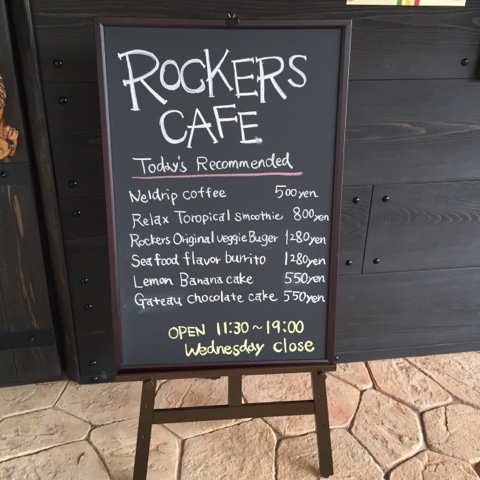 ROCKERS
CAFE
Today's Recommended
Neldrip coffee 500yen
Relax Toropical smoothie 800yen
Rockers Original veggie Buger 1280yen
Seafood flavor burrito 1280yen
Lemon Banana cake 550yen
Gateau chocolate cake 550yen
OPEN 11:30~19:00
Wednesday close